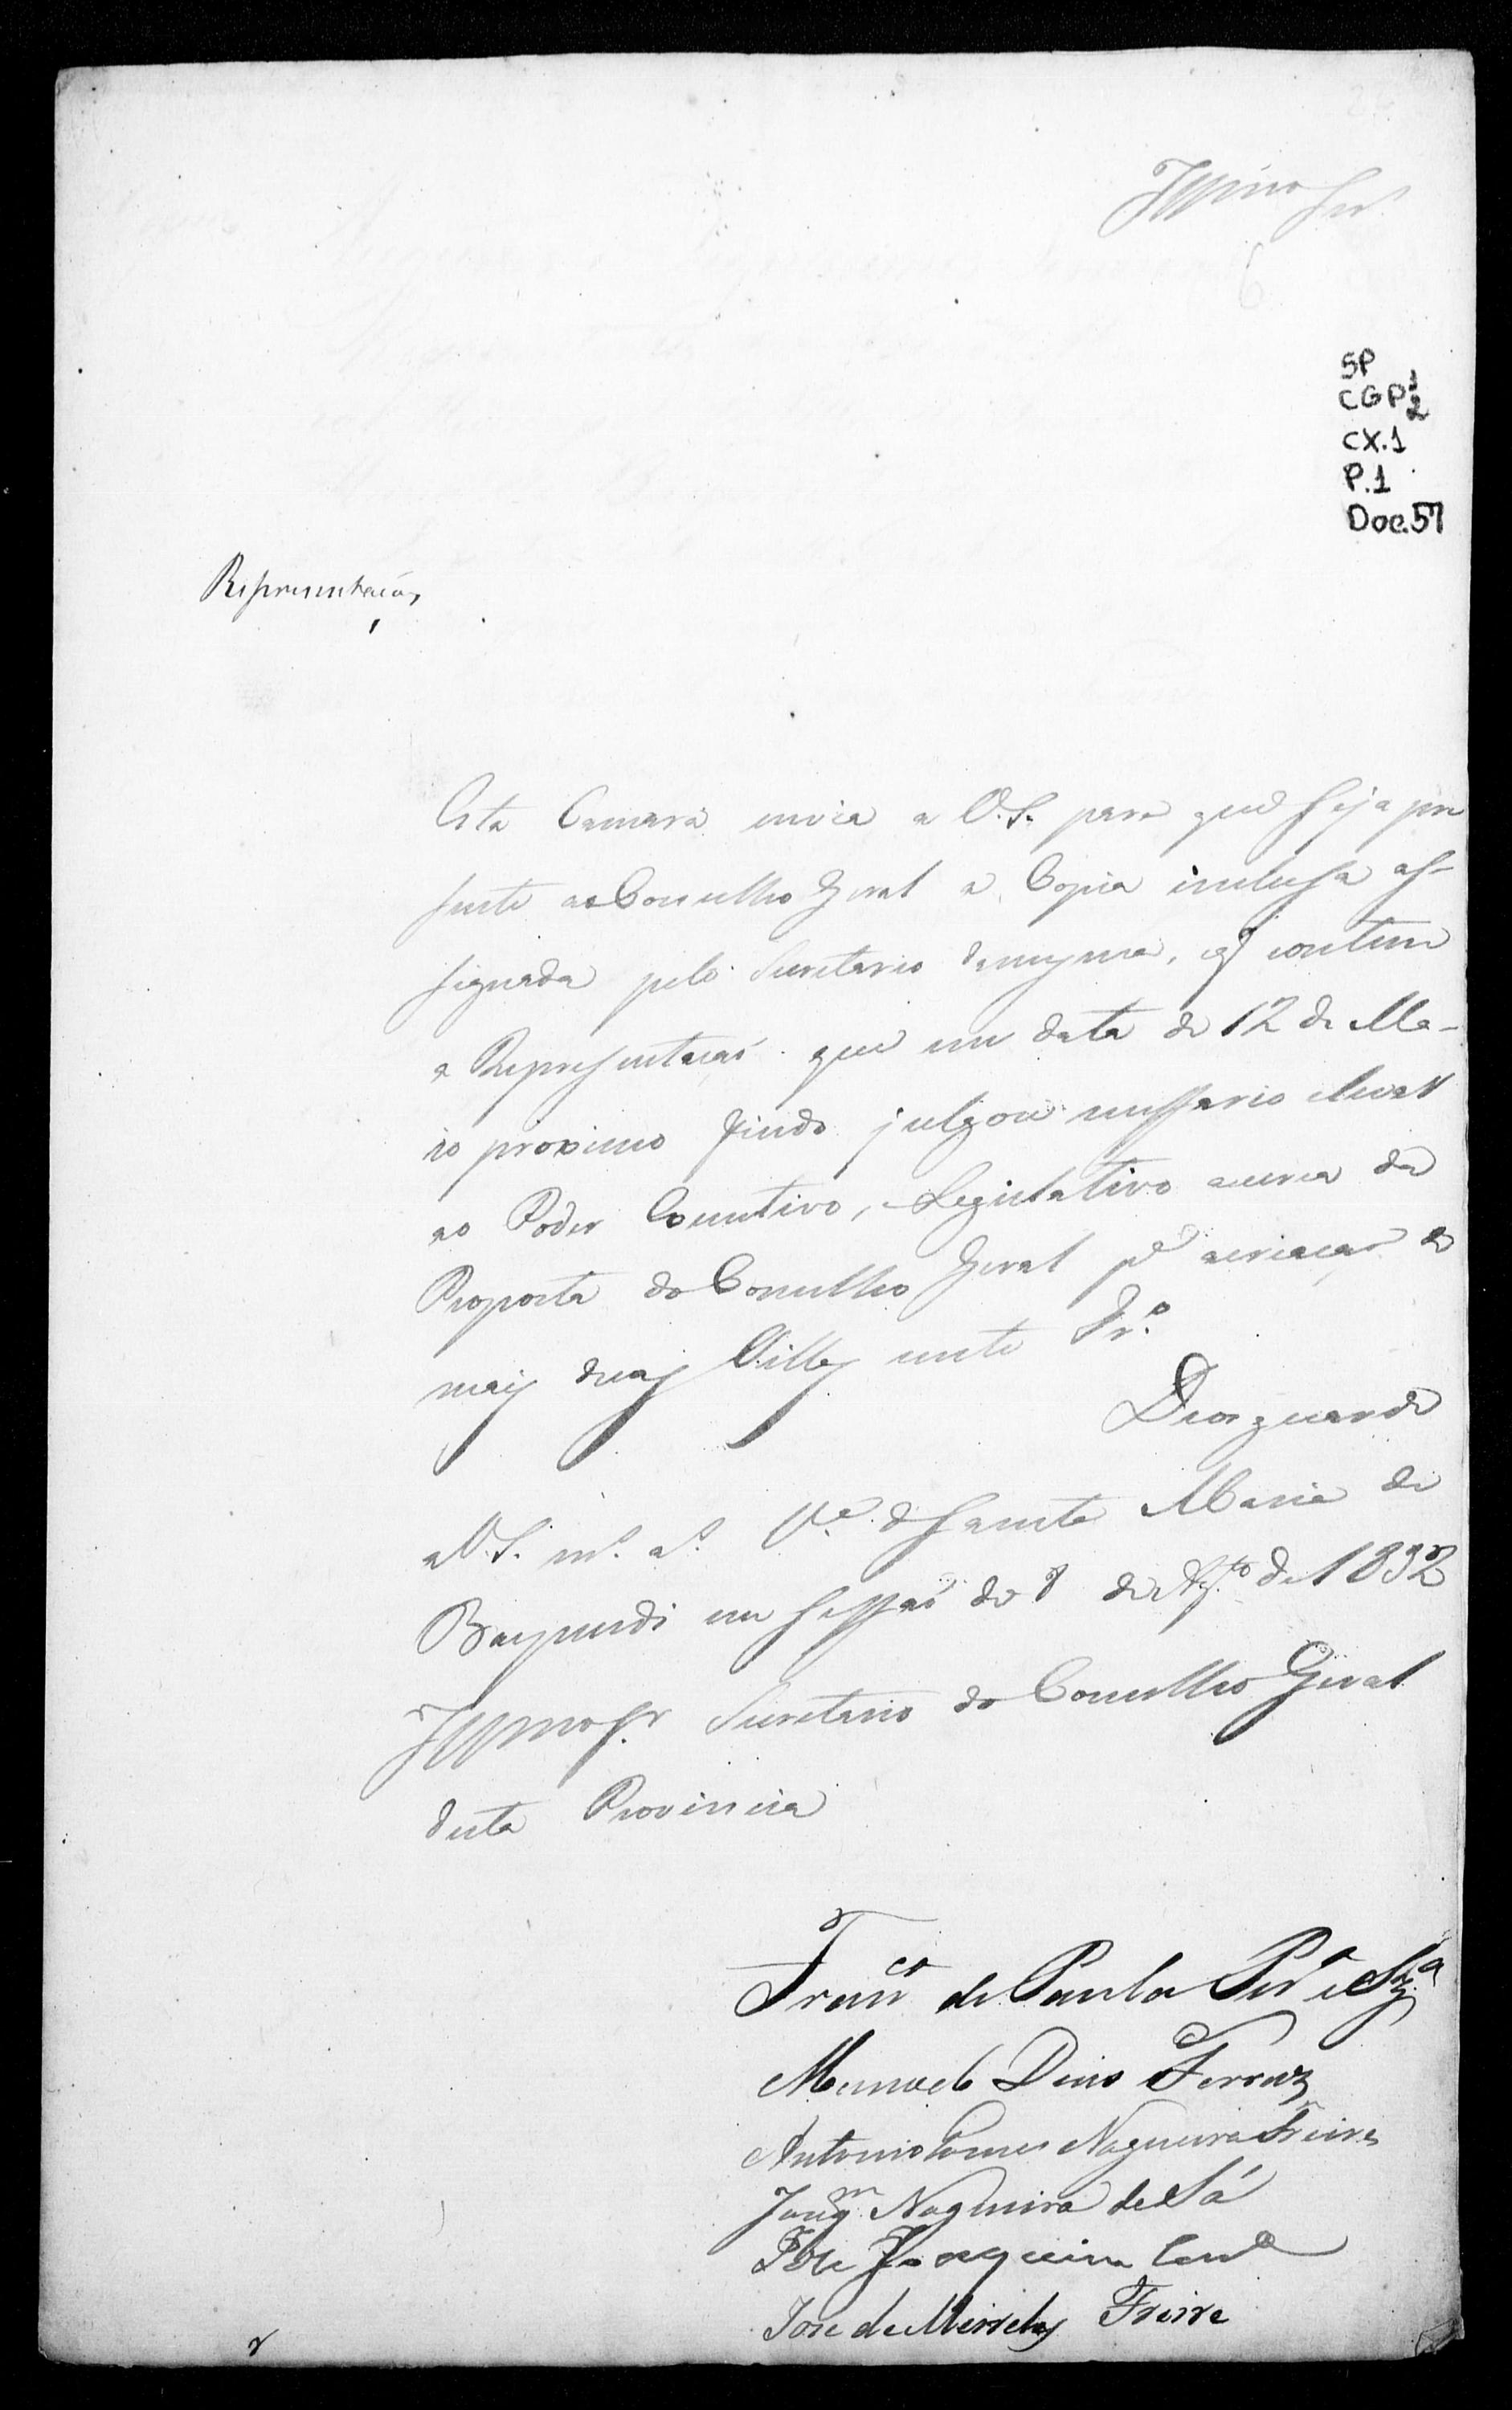 Illmo Snr.
6
SP
CGP 1
2
CX.1
P.1
Doc.57
Representação,
Esta Camara envia a V.S. para que seja pre
sente ao Conselho Geral a Copia inclusa as-
signada pelo Secretario da mesma, q contem
a Representação que em data de 12 de Ma-
io proximo findo julgou nessario elevar
ao Poder Legislativo acerca da
Proposta do Conselho Geral pa a criação de
mais duas Villas neste Tr.o
Deos guarde
a V.S. ms. as. Va. de Santa Maria de
Baependi em Sessão de 8 de Agto de 1832
Illmo Sr. Secretario do Conselho Geral
desta Provincia
Franco de Paula Pra e Sza
Manoel Dinis Ferraz
Antonio Gomes Nogueira Freire
Joaqm Nogueira de Sá
José Joaquim
Jose de Meirelles Freire